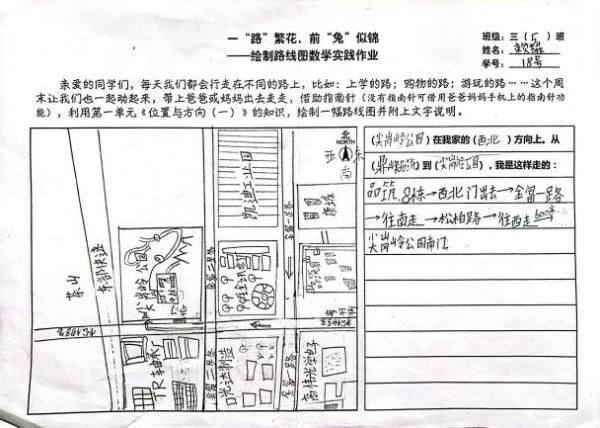 一“路”繁花，前“兔”似锦
——绘制路线图数学实践作业
班级：三（5）班
姓名：
学号：18号
亲爱的同学们，每天我们都会行走在不同的路上，比如：上学的路；购物的路；游玩的路……这个周
末让我们也一起动起来，带上爸爸或妈妈出去走走，借助指南针（没有指南针可借用爸爸妈妈手机上的指南针功
能），利用第一单元《位置与方向（一）》的知识，绘制一幅路线图并附上文字说明。
北
NORTH
西
东
南
东山
东部快速
尖岗岭公园
凯迪工业园
金富一路
金富二路
松柏路
TR轴承厂
光达制造
金富二路
金富一路
高伟光学电子
（尖岗岭公园）在我家的（西北）方向上。从
（）到（尖岗岭公园），我是这样走的：
品筑8栋→西北门出去→金富一路
→往南走→松柏路→往西走600米
尖岗岭公园南门。